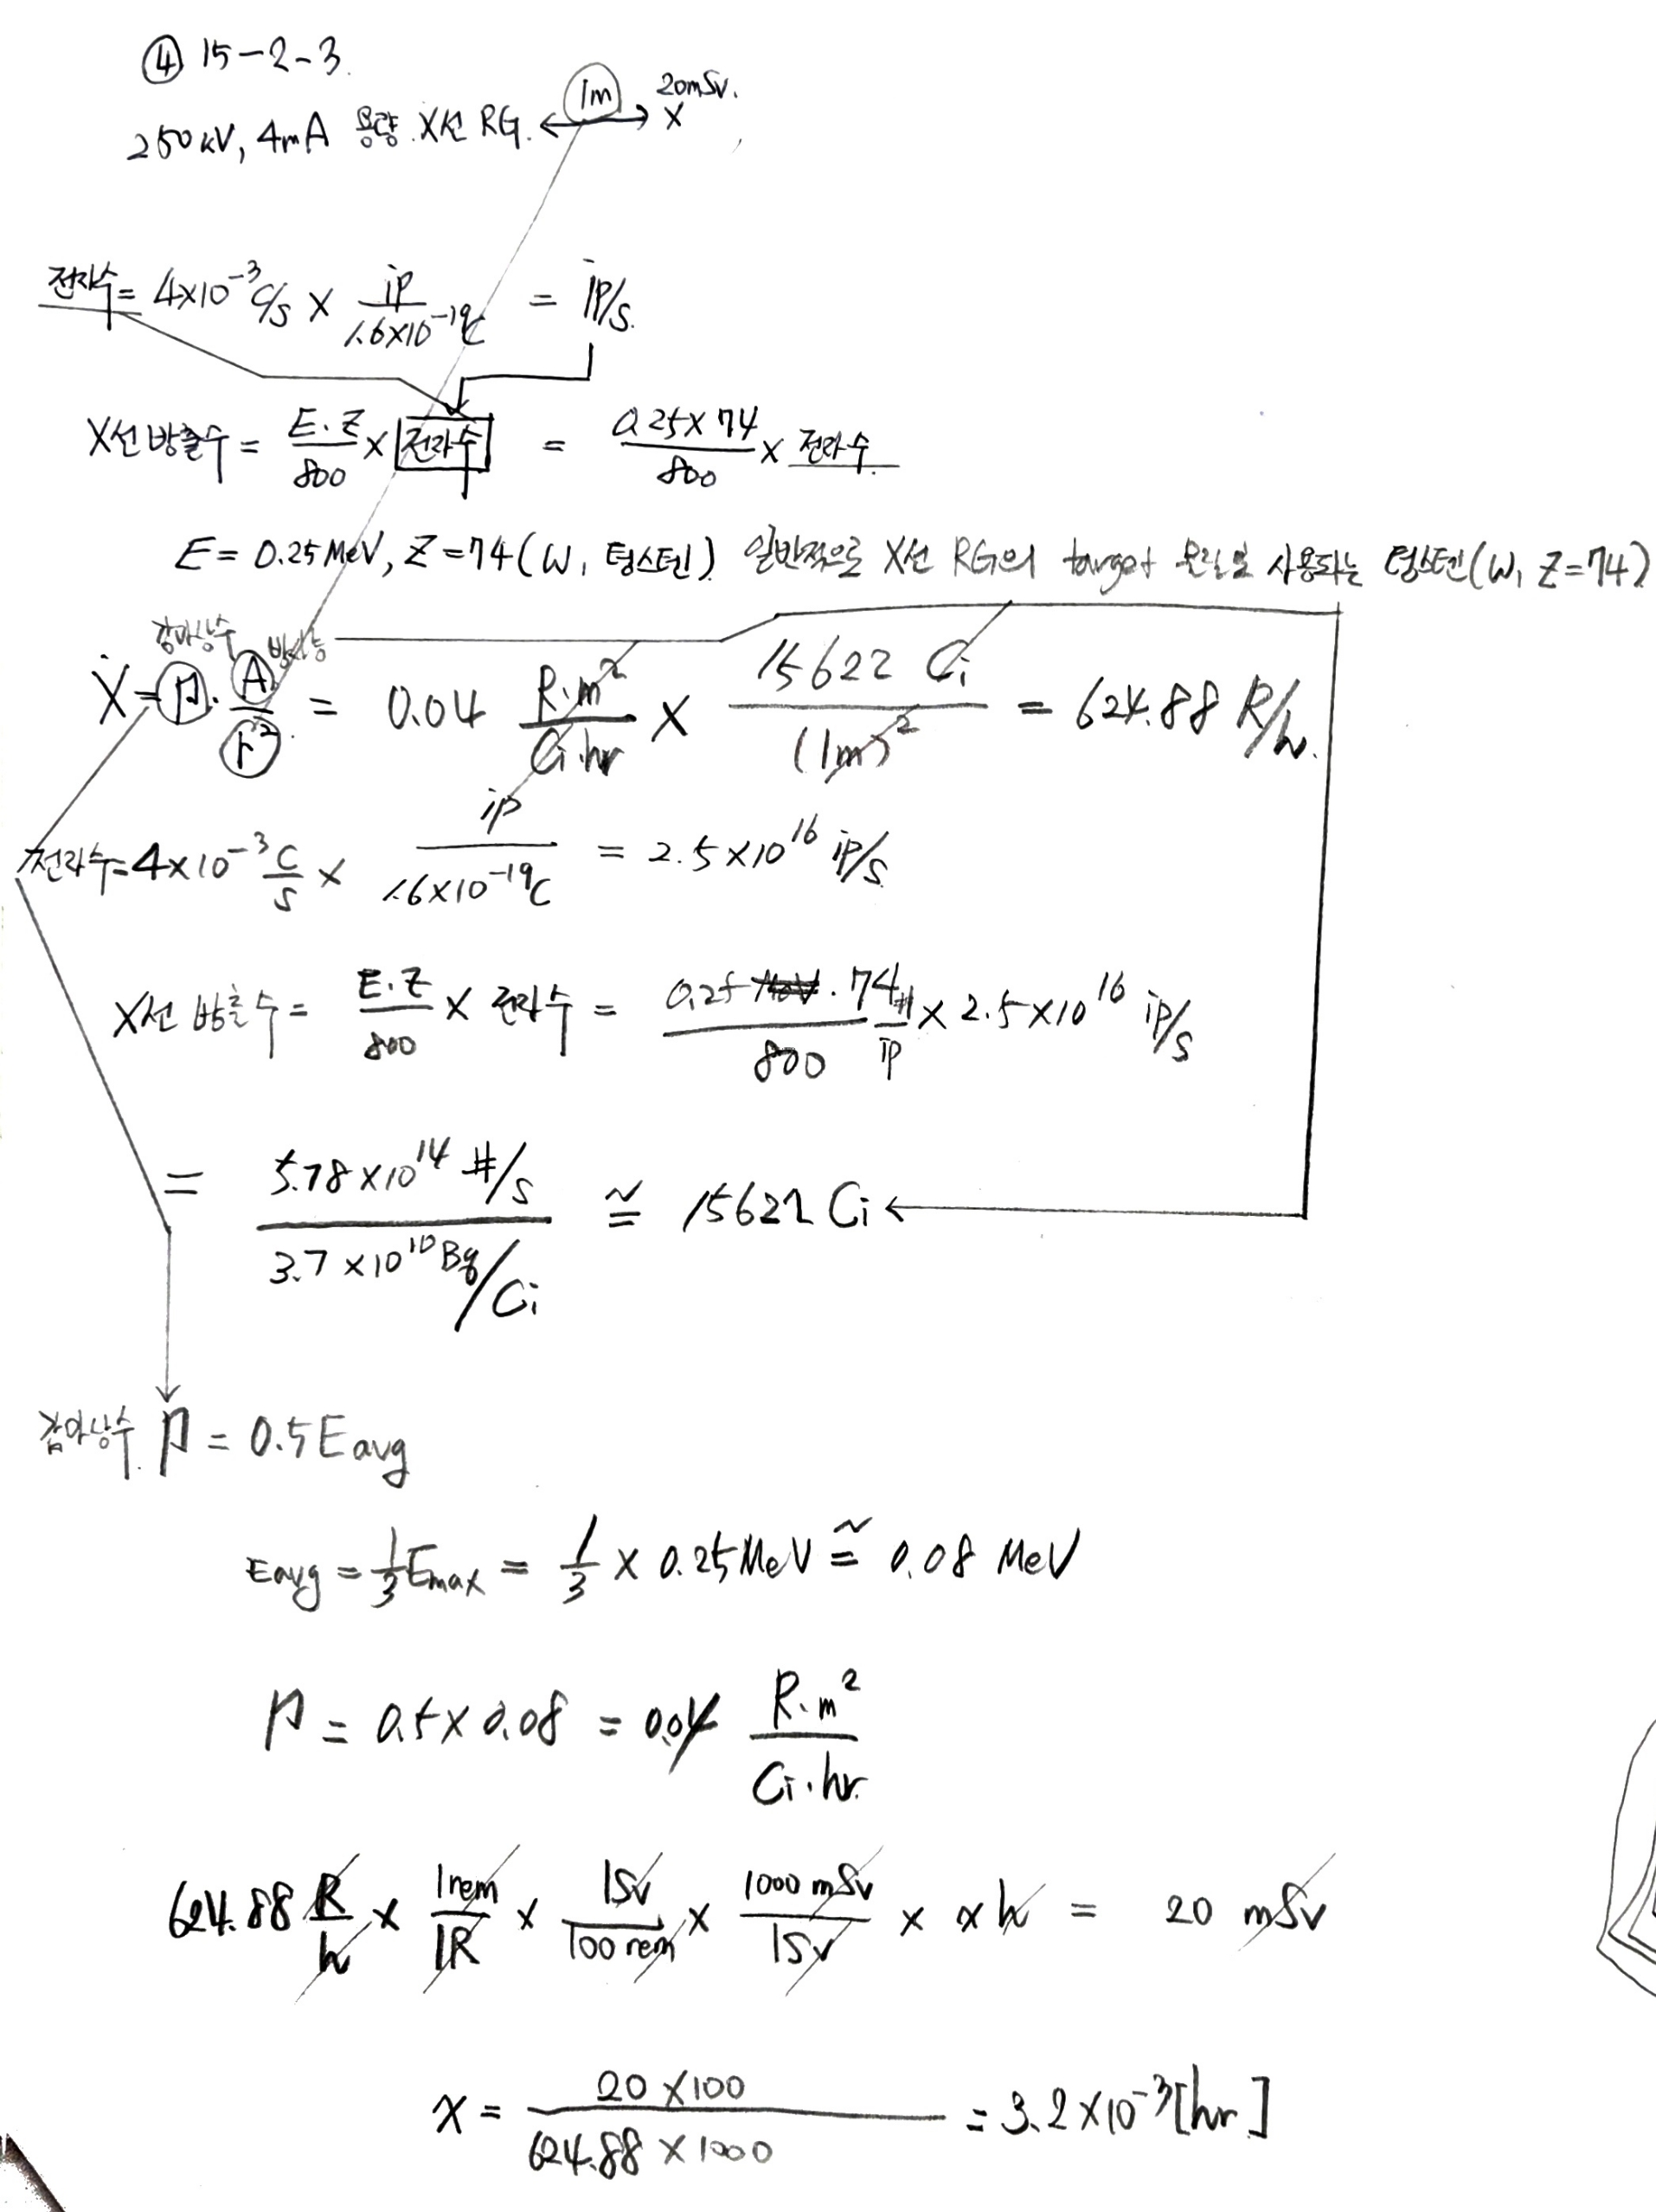 ④ 15-2-3.
250kV, 4mA 용량 X선 RG. ← 1m → X 20mSv.
전자수 = 4×10⁻³ C/s × ip / 1.6×10⁻¹⁹C = ip/s.
X선 방출수 = E·Z / 800 × 전자수 = 0.25×74 / 800 × 전자수.
E = 0.25MeV, Z=74 (W, 텅스텐). 일반적으로 X선 RG의 target 물질로 사용되는 텅스텐(W, Z=74)
감마상수 방사능
Ẋ = Γ · A / r² = 0.04 R·m² / Ci·hr × 15622 Ci / (1m)² = 624.88 R/h.
전자수 = 4×10⁻³ C/s × ip / 1.6×10⁻¹⁹C = 2.5×10¹⁶ ip/s
X선 방출수 = E·Z / 800 × 전자수 = 0.25 · 74 / 800 #/ip × 2.5×10¹⁶ ip/s
= 5.78×10¹⁴ #/s / 3.7×10¹⁰ Bq/Ci ≅ 15622 Ci ←
감마상수. Γ = 0.5 Eavg
Eavg = 1/3 Emax = 1/3 × 0.25MeV ≅ 0.08 MeV
Γ = 0.5×0.08 = 0.04 R·m² / Ci·hr.
624.88 R/h × 1rem/1R × 1Sv/100rem × 1000mSv/1Sv × x h = 20 mSv
x = 20×100 / 624.88×1000 = 3.2×10⁻³ [hr]